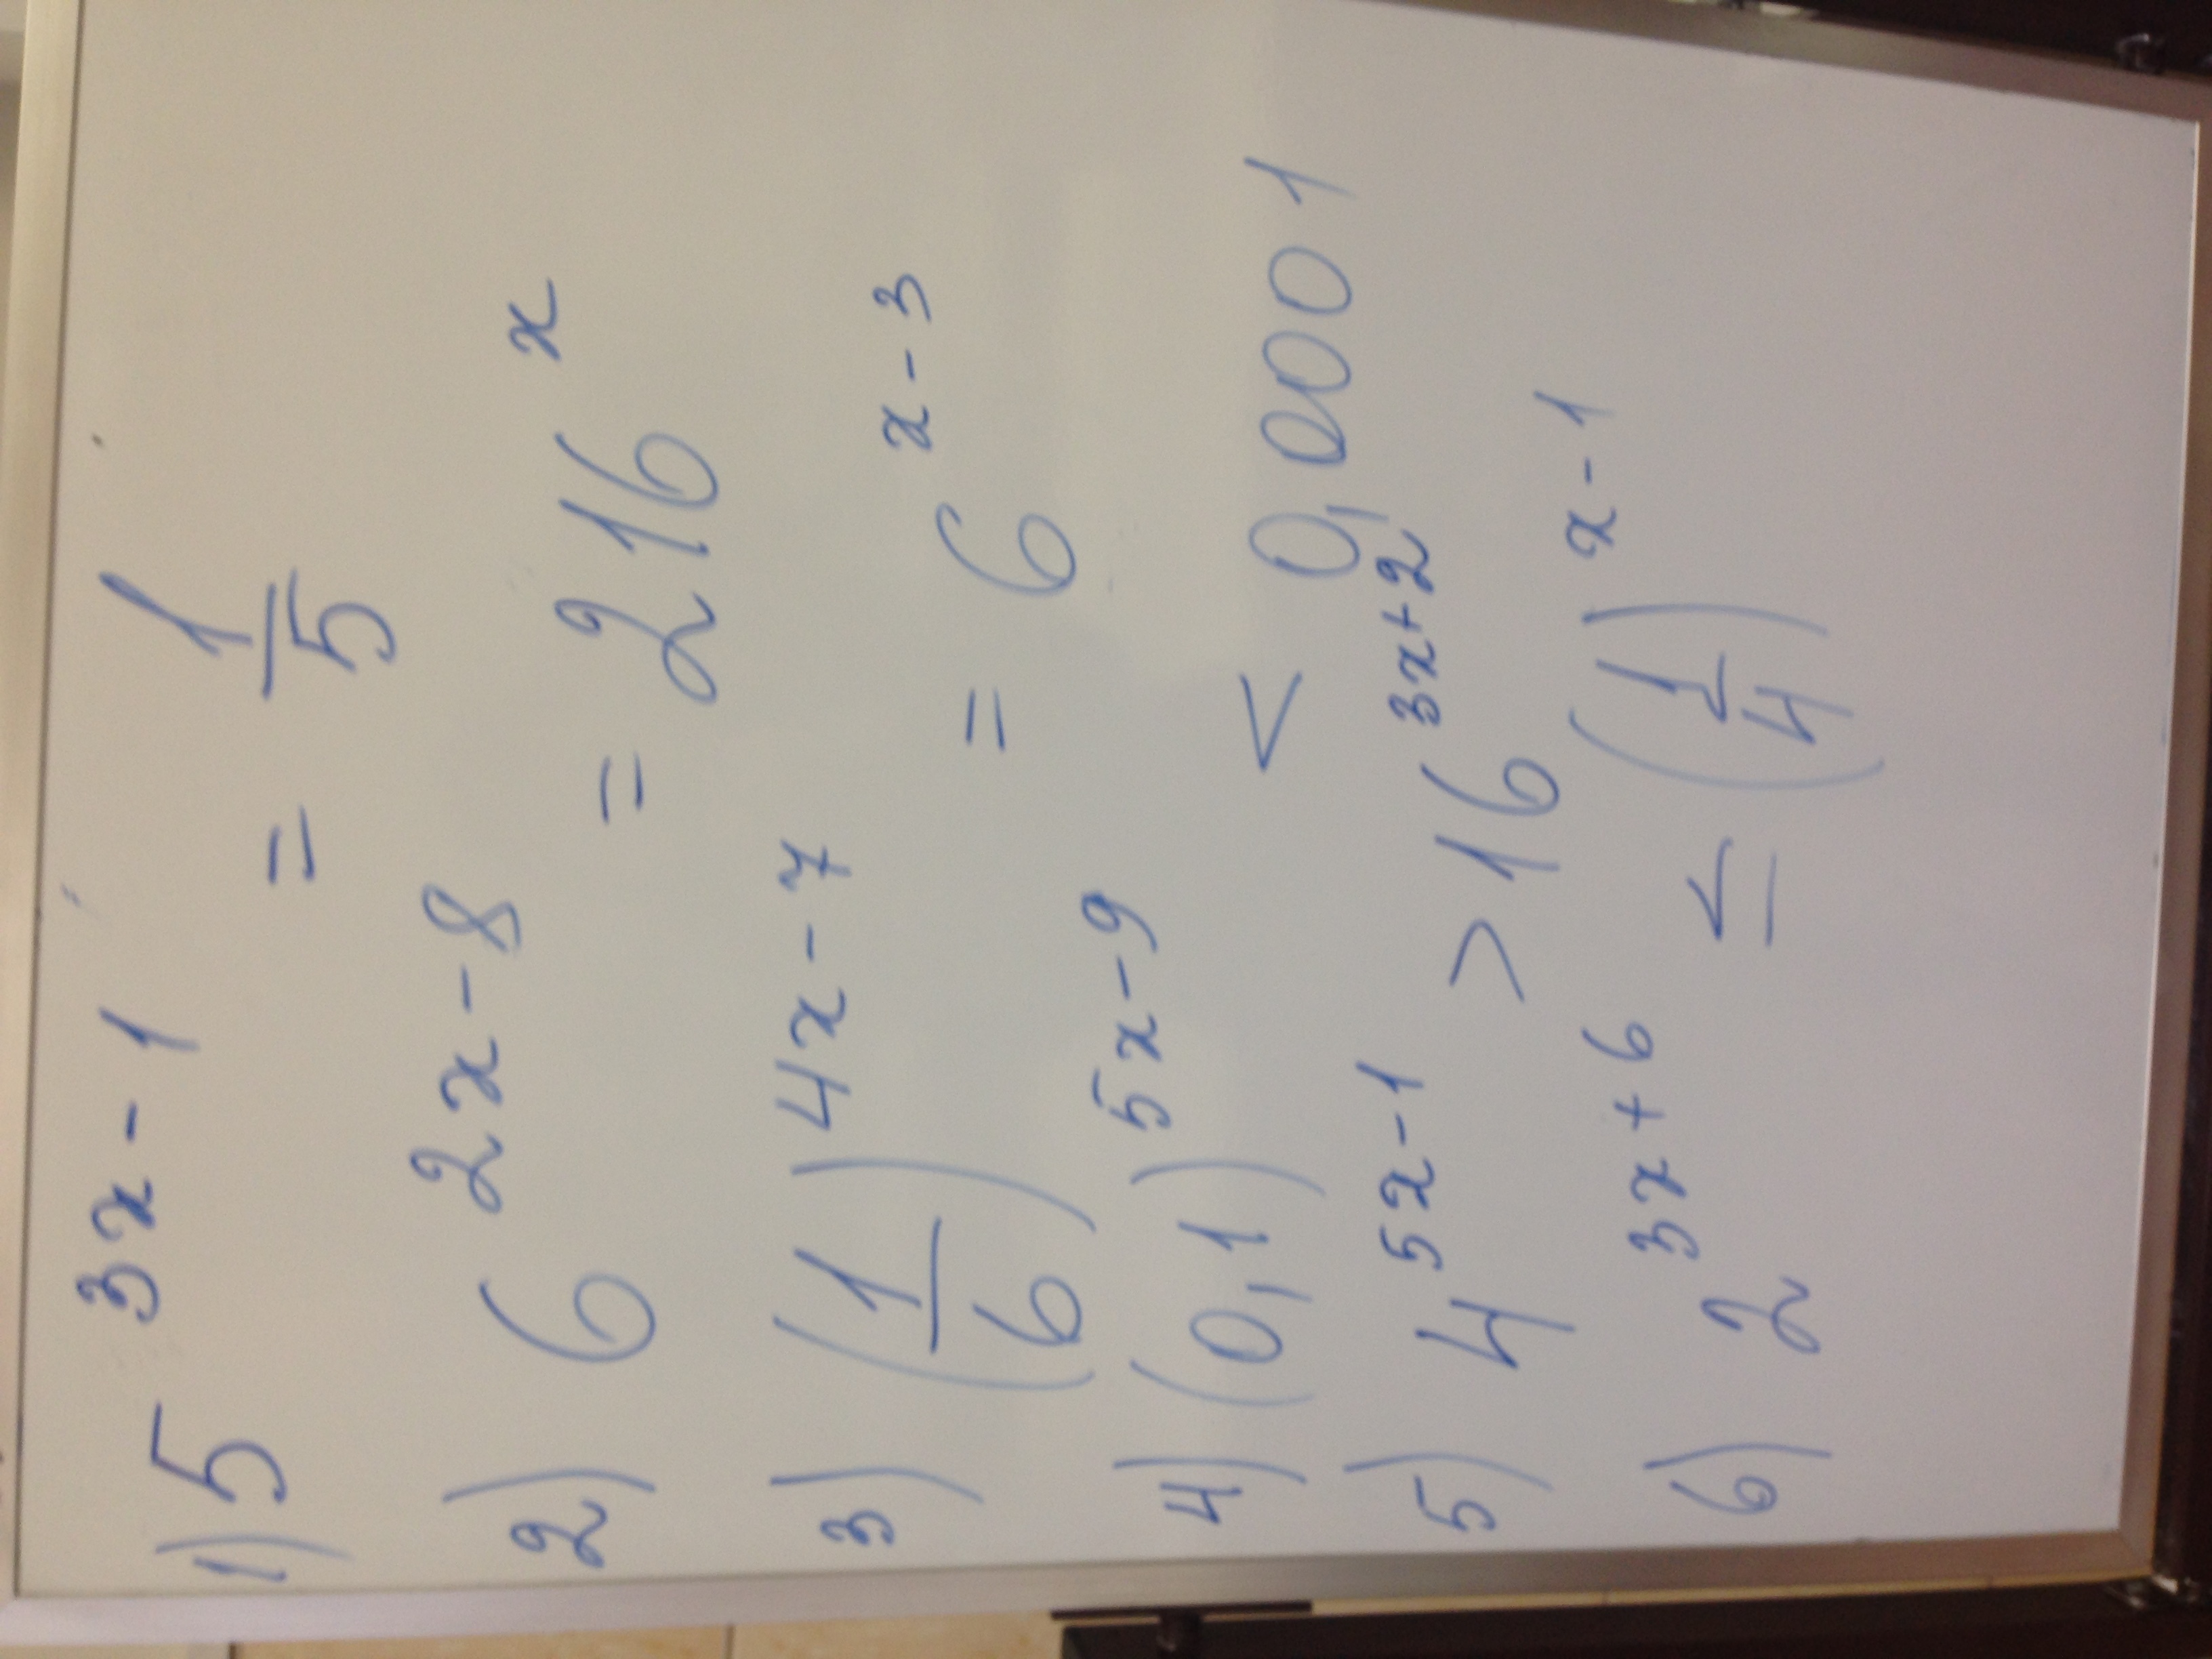 1) 5^{3x-1} = \frac{1}{5}
2) 6^{2x-8} = 216^{x}
3) (\frac{1}{6})^{4x-7} = 6^{x-3}
4) (0,1)^{5x-9} < 0,0001
5) 4^{5x-1} > 16^{3x+2}
6) 2^{3x+6} ≤ (\frac{1}{4})^{x-1}